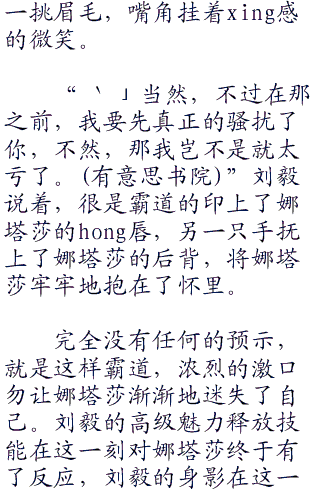 一挑眉毛，嘴角挂着xing感
的微笑。
“丶」当然，不过在那
之前，我要先真正的骚扰了
你，不然，那我岂不是就太
亏了。(有意思书院)”刘毅
说着，很是霸道的印上了娜
塔莎的hong唇，另一只手抚
上了娜塔莎的后背，将娜塔
莎牢牢地抱在了怀里。
完全没有任何的预示，
就是这样霸道，浓烈的激口
勿让娜塔莎渐渐地迷失了自
己。刘毅的高级魅力释放技
能在这一刻对娜塔莎终于有
了反应，刘毅的身影在这一